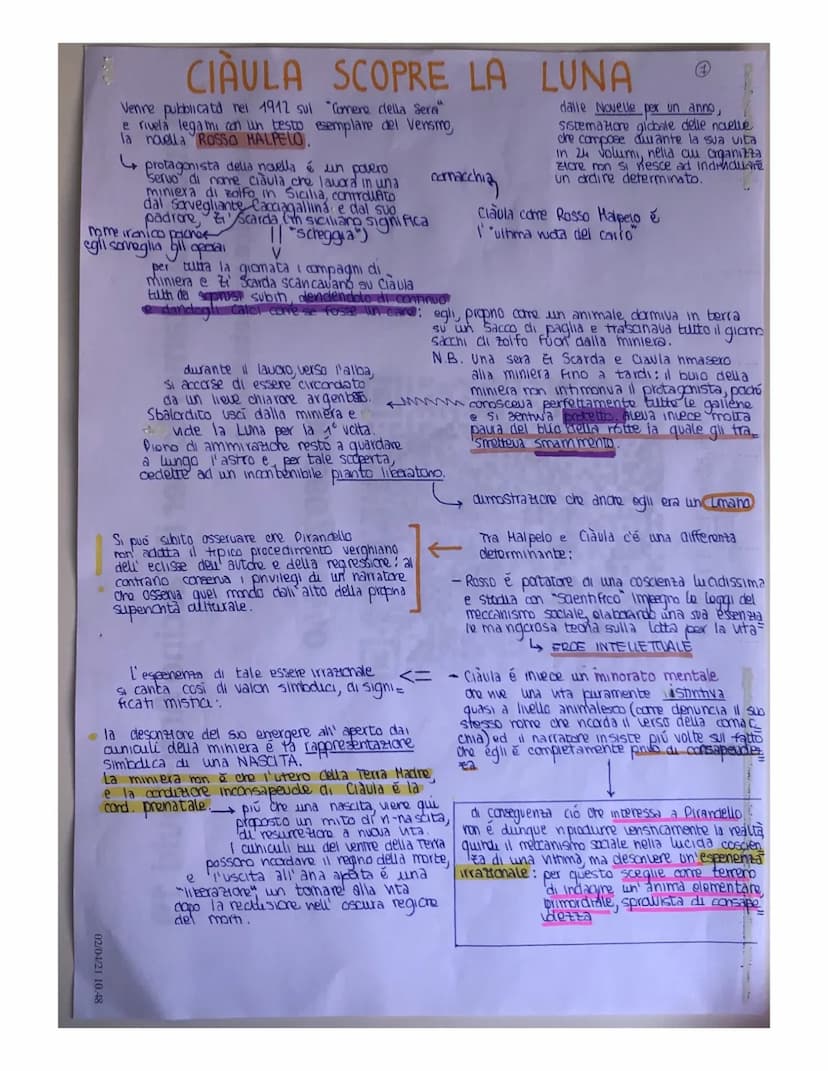 CIÀULA SCOPRE LA LUNA
1
Venne pubblicata nel 1912 sul "Corriere della Sera"
e rivela legami con un testo esemplare del Verismo,
la novella ROSSO MALPELO.
dalle Novelle per un anno,
sistemazione globale delle novelle
che compose durante la sua vita
in 24 volumi, nella cui organizza
zione non si riesce ad individuare
un ordine determinato.
↳ protagonista della novella é un povero
servo di nome Ciàula che lavora in una
miniera di zolfo in Sicilia, controllato
dal sorvegliante Cacciagallina e dal suo
padrone, Zi' Scarda (in siciliano significa
"scheggia")
cornacchia
Ciàula come Rosso Malpelo é
l'"ultima ruota del carro"
nome ironico poiché
egli sorveglia gli operai
per tutta la giornata i compagni di
miniera e Zi' Scarda scaricavano su Ciàula
tutti da soprusi subiti, deridendolo di continuo
e dandogli calci come se fosse un cane: egli, proprio come un animale, dormiva in terra
su un sacco di paglia e trascinava tutto il giorno
sacchi di zolfo fuori dalla miniera.
N.B. Una sera Zi Scarda e Ciaula rimasero
alla miniera fino a tardi: il buio della
miniera non intimoriva il protagonista, poiché
conosceva perfettamente tutte le gallerie
e si sentiva protetto. Aveva invece molta
paura del buio della notte la quale gli tra
smetteva smarrimento.
durante il lavoro, verso l'alba,
si accorse di essere circondato
da un lieve chiarore argenteo.
Sbalordito uscì dalla miniera e
vide la Luna per la 1° volta.
Pieno di ammirazione restò a guardare
a lungo l'astro e, per tale scoperta,
cedette ad un incontenibile pianto liberatorio.
→ dimostrazione che anche egli era un umano
Si può subito osservare che Pirandello
non adotta il tipico procedimento verghiano
dell'eclisse dell'autore e della regressione: al
contrario conserva i privilegi di un narratore
che osserva quel mondo dall'alto della propria
superiorità culturale.
Tra Malpelo e Ciàula c'é una differenza
determinante:
- Rosso é portatore di una coscienza lucidissima
e studia con "scientifico" impegno le leggi del
meccanismo sociale, elaborando una sua essenzia
le ma rigorosa teoria sulla lotta per la vita
↳ EROE INTELLETTUALE
L'esperienza di tale essere irrazionale
si carica così di valori simbolici, di signi=
ficati mistici:
<= - Ciàula é invece un minorato mentale
che vive una vita puramente istintiva
quasi a livello animalesco (come denuncia il suo
stesso nome che ricorda il verso della cornac
chia) ed il narratore insiste più volte sul fatto
che egli é completamente privo di consapevolez
za
la descrizione del suo emergere all'aperto dai
cunicoli della miniera é la rappresentazione
simbolica di una NASCITA.
La miniera non é che l'utero della Terra Madre,
e la condizione inconsapevole di Ciàula é la
cond. prenatale. → più che una nascita, viene qui
proposto un mito di ri-nascita,
di resurrezione a nuova vita.
I cunicoli bui del ventre della Terra
possono ricordare il regno della morte,
e l'uscita all'aria aperta é una
"liberazione" un tornare alla vita
dopo la reclusione nell'oscura regione
dei morti.
di conseguenza ciò che interessa a Pirandello
non é dunque riprodurre veristicamente la realtà
quindi il meccanismo sociale nella lucida coscien
za di una vittima, ma descrivere un'esperienza
irrazionale: per questo sceglie come terreno
di indagine un'anima elementare,
primordiale, sprovvista di consape
volezza
02/04/21 10.48